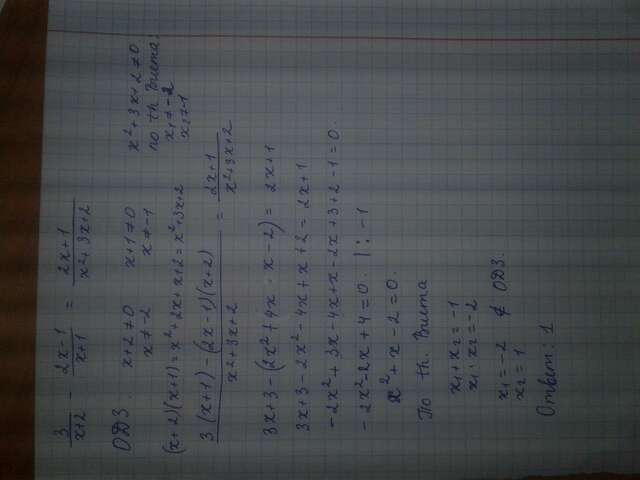 3/(x+2) - (2x-1)/(x+1) = (2x+1)/(x²+3x+2)
ОДЗ. x+2≠0 x+1≠0 x²+3x+2≠0
x≠-2 x≠-1 по th. Виета:
x₁≠-2
x₂≠-1
(x+2)(x+1)=x²+2x+x+2=x²+3x+2
(3(x+1)-(2x-1)(x+2))/(x²+3x+2) = (2x+1)/(x²+3x+2)
3x+3-(2x²+4x-x-2)=2x+1
3x+3-2x²-4x+x+2=2x+1
-2x²+3x-4x+x-2x+3+2-1=0.
-2x²-2x+4=0. |:-1
x²+x-2=0.
По th. Виета
x₁+x₂=-1
x₁·x₂=-2
x₁=-2 ∉ ОДЗ.
x₂=1
Ответ: 1